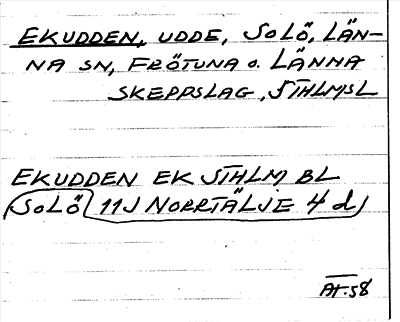 EKUDDEN, UDDE, SOLÖ, LÄN-
NA SN, FRÖTUNA O. LÄNNA
SKEPPSLAG, STHLMSL
EKUDDEN EK STHLM BL
(SOLÖ) 11J NORRTÄLJE 4 d)
AT-58